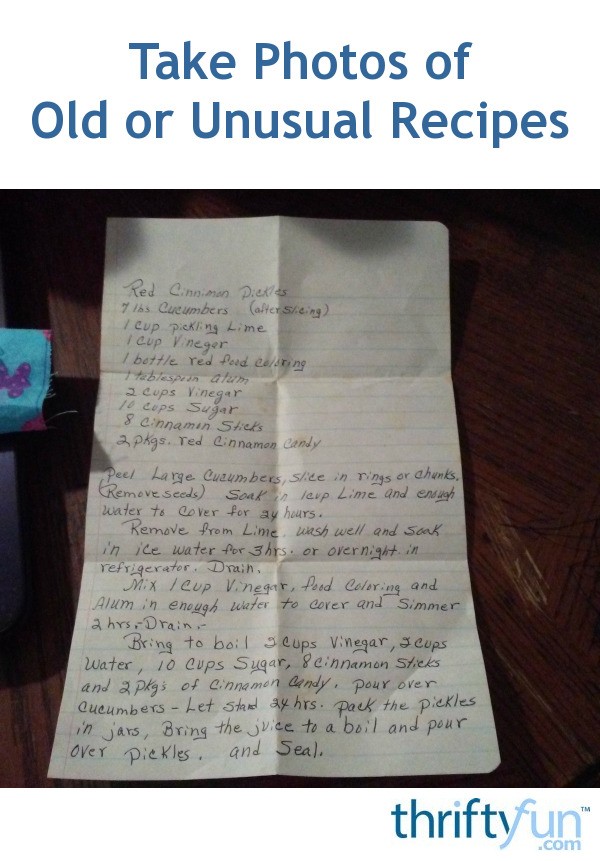 Take Photos of
Old or Unusual Recipes
Red Cinnimon Pickles
7 lbs Cucumbers (after slicing)
1 Cup pickling Lime
1 Cup Vinegar
1 bottle red food coloring
1 tablespoon alum
2 cups Vinegar
10 cups Sugar
8 Cinnamon Sticks
2 pkgs. red Cinnamon Candy
Peel Large Cucumbers, slice in rings or chunks.
(Remove seeds) Soak in 1 cup Lime and enough
water to cover for 24 hours.
Remove from Lime. wash well and soak
in ice water for 3 hrs. or overnight in
refrigerator. Drain.
Mix 1 Cup Vinegar, food Coloring and
Alum in enough water to cover and Simmer
2 hrs. - Drain. -
Bring to boil 2 Cups Vinegar, 2 cups
Water, 10 Cups Sugar, 8 Cinnamon Sticks
and 2 pkg's of Cinnamon Candy. pour over
Cucumbers - Let Stand 24 hrs. pack the pickles
in jars, Bring the juice to a boil and pour
over pickles. and Seal.
thriftyfun™
.com